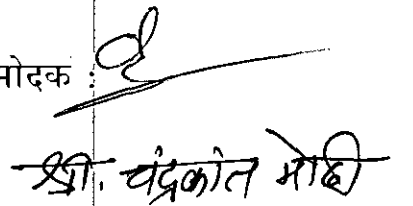 मोदक :
श्री. चंद्रकांत मोदी